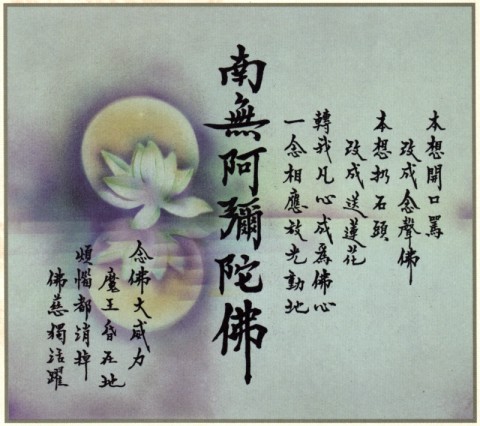 本想開口罵
改成念聲佛
本想扔石頭
改成送蓮花
轉我凡心成為佛心
一念相應放光動地
南無阿彌陀佛
念佛大威力
魔王昏在地
煩惱都消掉
佛慈獨活躍